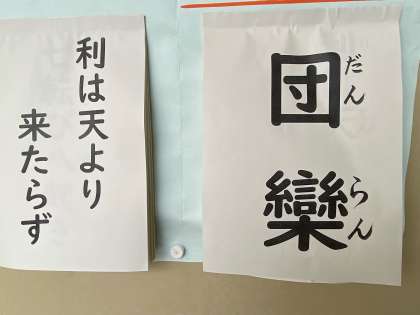 団欒
だんらん
利は天より
来たらず